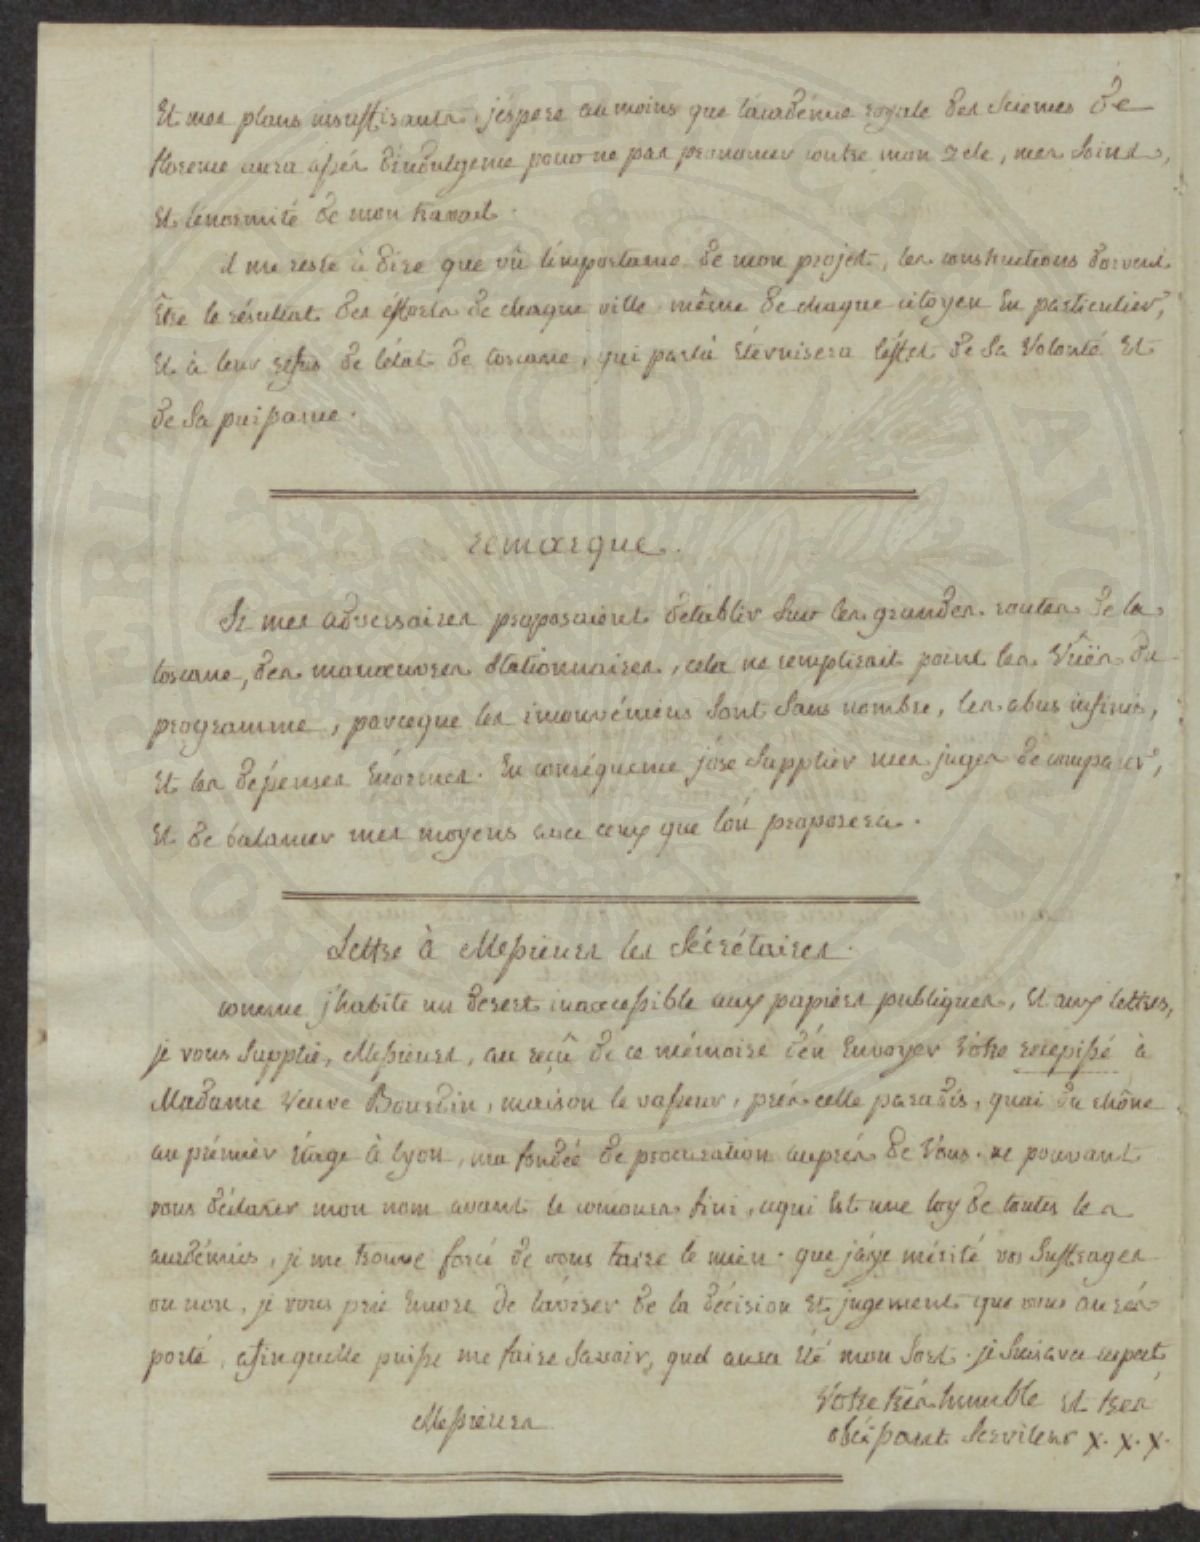 Et mes plans insuffisants, j'éspere au moins que l'académie royale des Sciences de
florence aura assés d'indulgence pour ne pas prononcer contre mon zele, mes Soins,
Et l'enormité de mon travail.
il me reste à dire que vû l'importance de mon projet, les constructions doivent
Être le résultat des éfforts de chaque ville même de chaque citoyen En particulier,
Et à leur refus de l'état de toscane, qui par là Éternisera l'éffet de Sa Volonté Et
de Sa puissance.
remarque.
Si mes adversaires proposaient d'établir Sur les grandes routes de la
toscane, des manœuvres Stationnaires, cela ne remplirait point les Vuës du
programme, parceque les inconvéniens Sont Sans nombre, les abus infinis,
Et les dépenses Énormes. En conséquence j'ose Supplier mes juges de comparer,
Et de balancer mes moyens avec ceux que l'on proposera.
Lettre à Messieurs les Sécrétaires.
comme j'habite un desert inaccessible aux papiers publiques, Et aux lettres,
je vous Supplie, Messieurs, au reçû de ce mémoire d'én Envoyer Vôtre recepissé à
Madame Veuve Bourdin, maison le vasseur, prés celle paradis, quai du rhône
au prémier étage à lyon, ma fondée de procuration auprés de Vous. ne pouvant
vous déclarer mon nom avant le concours fini, ce qui Est une loy de toutes les
académies, je me trouve forcé de vous taire le mien. que j'aÿe mérité vos Suffrages
ou non, je vous prie Encore de l'aviser de la décision Et jugement que vous aurés
porté, afin quelle puisse me faire Savoir, quel aura Été mon Sort. je Suis avec respect
Messieurs
Vôtre trés humble Et trés
obéissant Serviteur x. x. x.